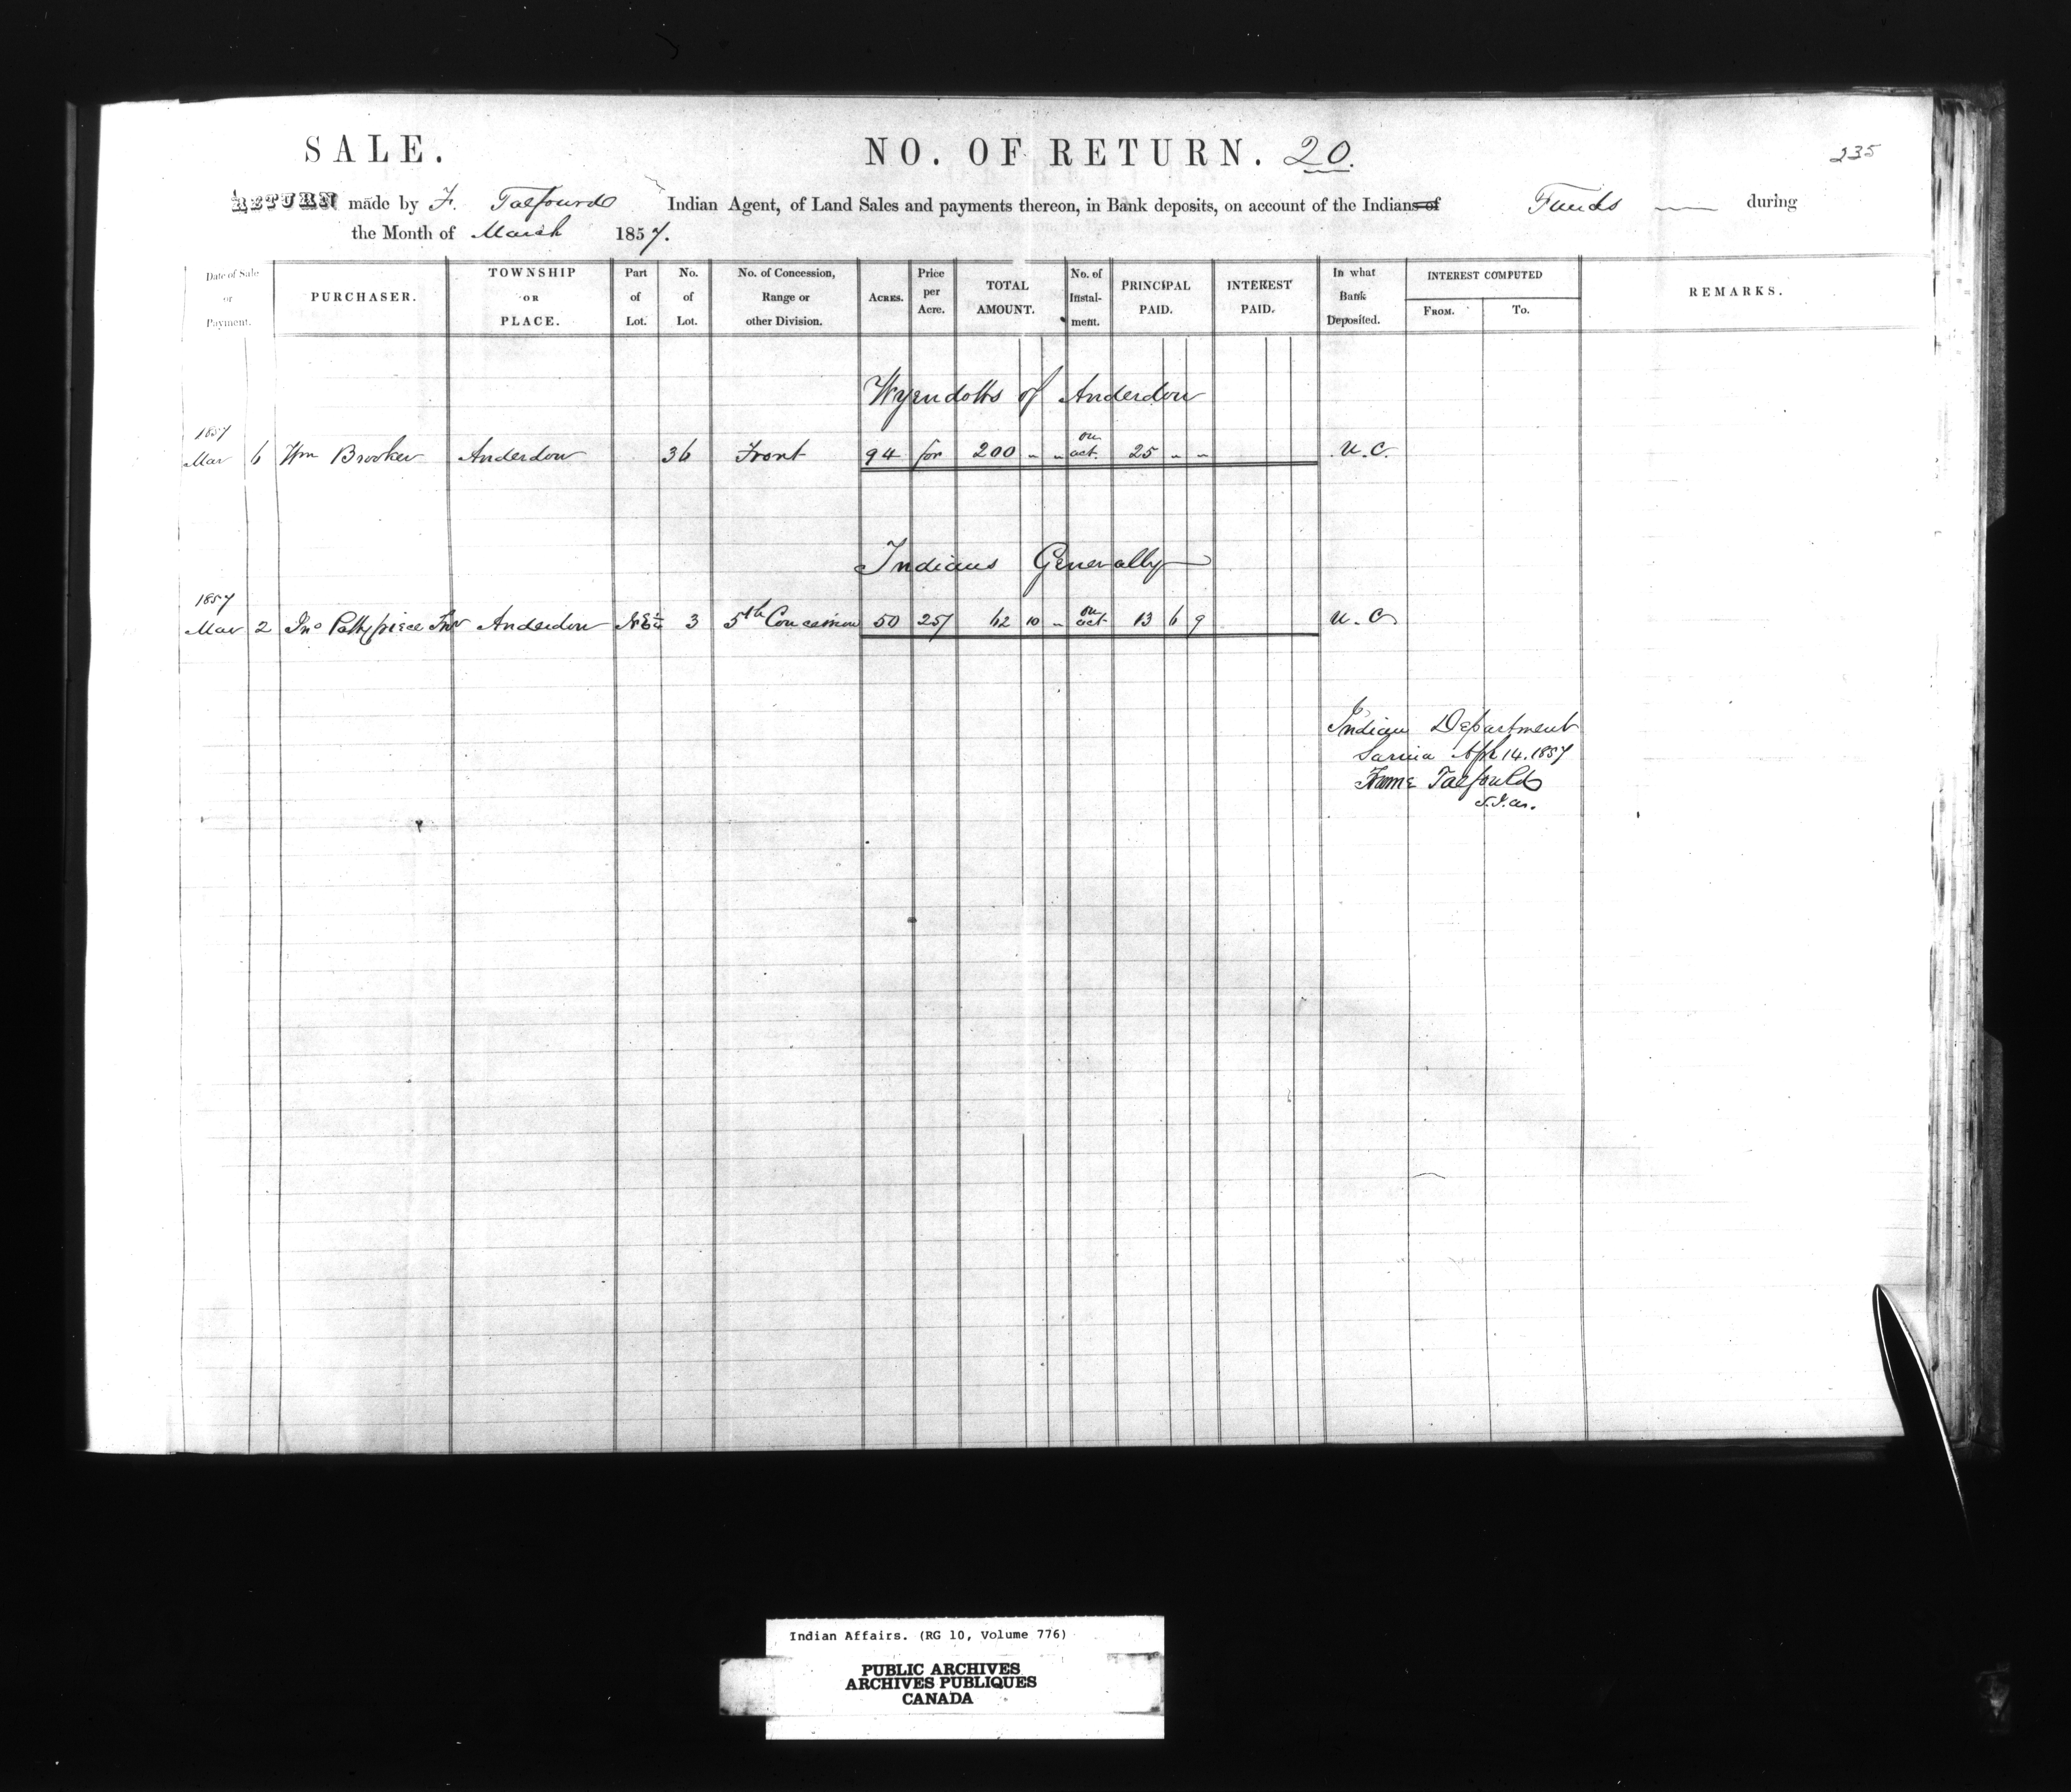 SALE. NO. OF RETURN. 20. 235
RETURN made by F. Talfourd Indian Agent, of Land Sales and payments thereon, in Bank deposits, on account of the Indians of Funds during
the Month of March 1857.
Date of Sale or Payment. PURCHASER. TOWNSHIP OR PLACE. Part of Lot. No. of Lot. No. of Concession, Range or other Division. ACRES. Price per Acre. TOTAL AMOUNT. No. of Instal-ment. PRINCIPAL PAID. INTEREST PAID. In what Bank Deposited. INTEREST COMPUTED FROM. TO. REMARKS.
Wyendotts of Anderdon
1857
Mar 6 Wm Brooker Anderdon 36 Front 94 for 200 " " on act. 25 " " U.C.
Indians Generally
1857
Mar 2 Jno Pattypiece Anderdon NE¼ 3 5th Concession 50 25/ 62 10 " on act. 13 6 9 U.C.
Indian Department
Sarnia Apl 14. 1857
Froome Talfourd
S.I.A.
Indian Affairs. (RG 10, Volume 776)
PUBLIC ARCHIVES
ARCHIVES PUBLIQUES
CANADA